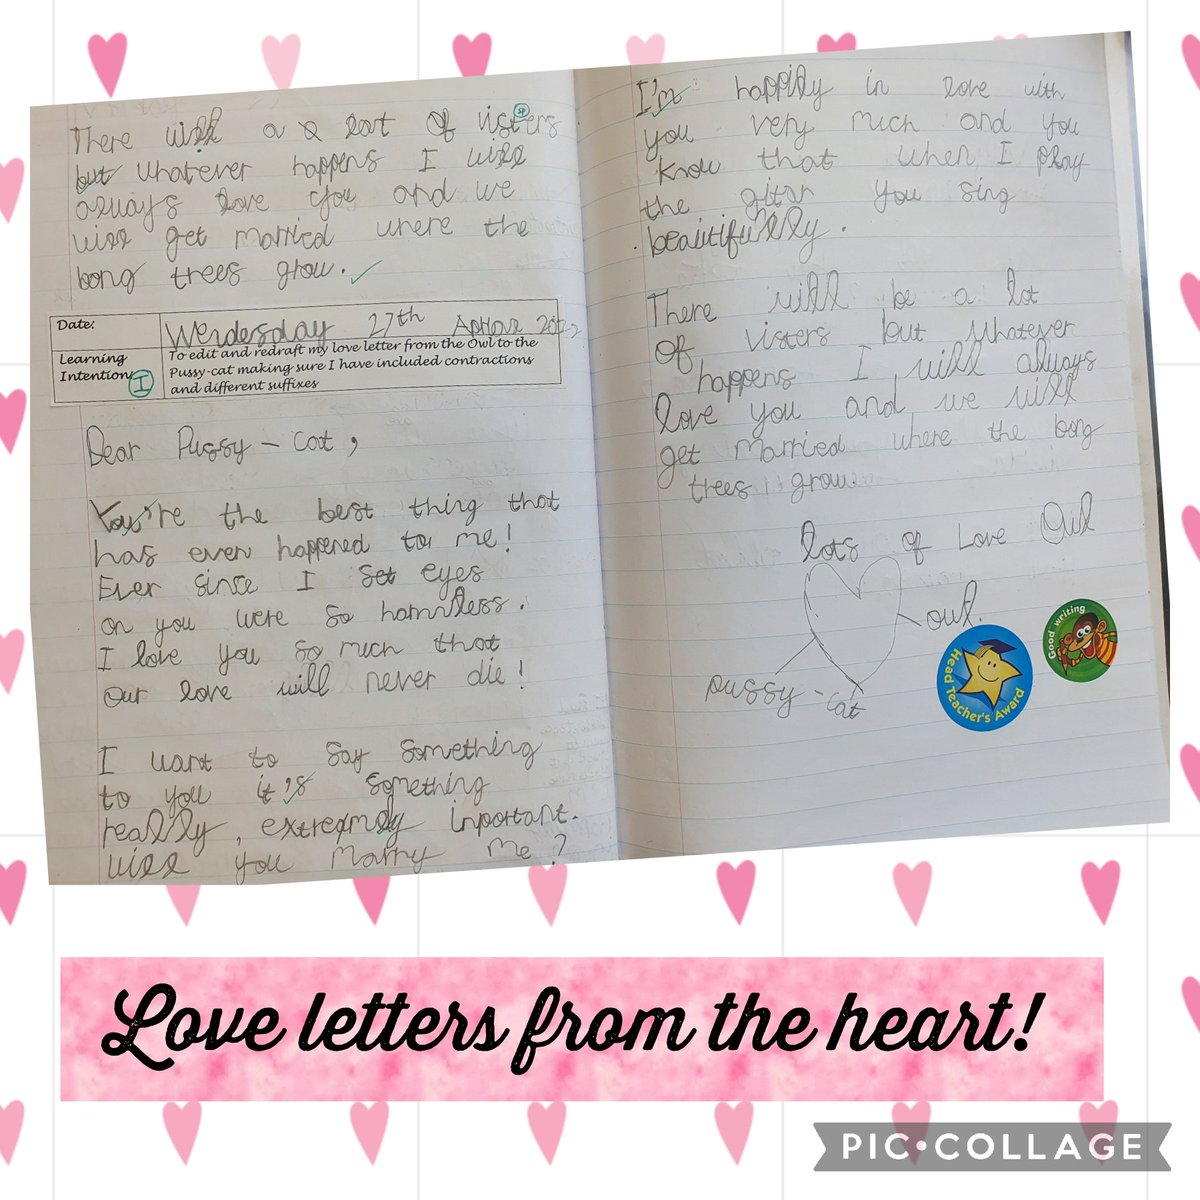 There will a a lot of visters
sp
but whatever happens I will
always love you and we
will get married where the
bong trees grow.
Date:
Werdesday 27th
Learning
Intention
I
To edit and redraft my love letter from the Owl to the
Pussy-cat making sure I have included contractions
and different suffixes
Dear Pussy-cat,
You're the best thing that
has even happened to me!
Ever since I set eyes
on you were so hamless.
I love you so much that
our love will never die!
I want to say something
to you it's something
really, extreamly inportant.
Will you marry me?
I'm happily in love with
you very much and you
know that when I play
the gitar you sing
beautifully.
There will be a lot
of visters but whatever
happens I will always
love you and we will
get married where the bong
trees grow.
lots of Love Owl
owl.
pussy-cat
Head Teacher's Award
Good writing
Love letters from the heart!
PIC•COLLAGE